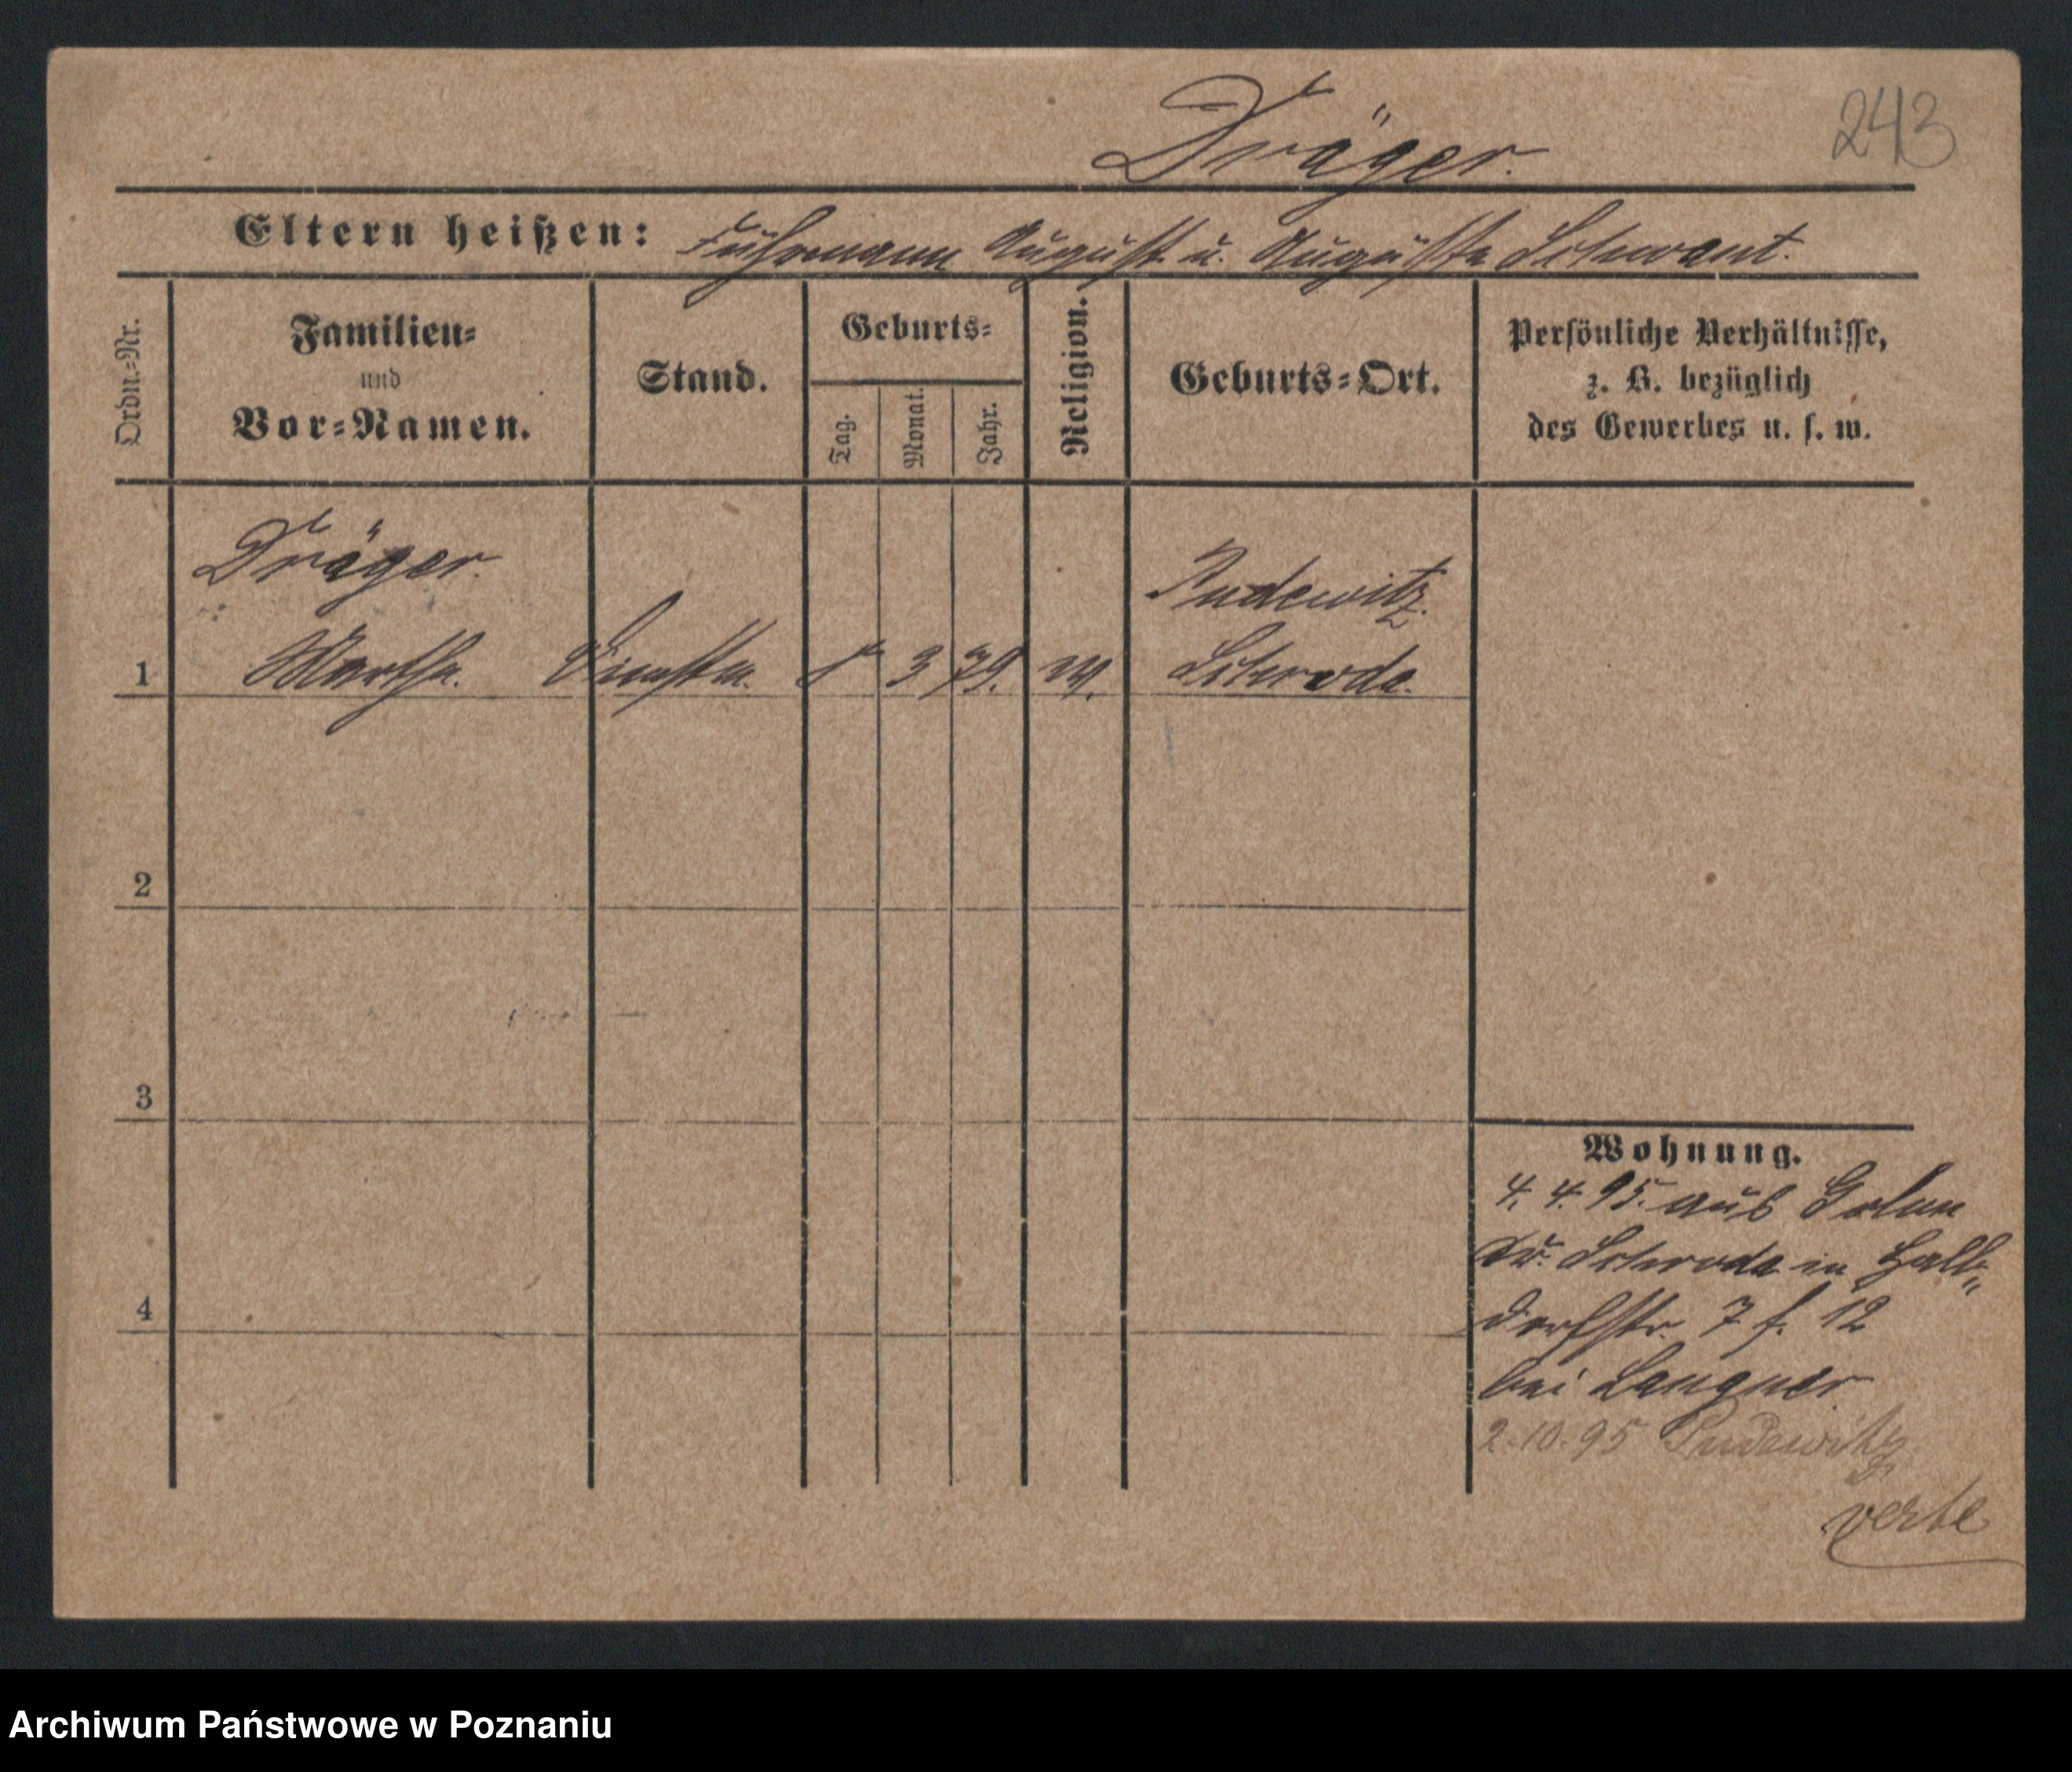 243
Dräger.
Eltern heißen: Fuhrmann August u. Auguste Schwant.
Ordn.-Nr.
Familien-
und
Vor-Namen.
Stand.
Geburts-
Tag.
Monat.
Jahr.
Religion.
Geburts-Ort.
Persönliche Verhältnisse,
z. B. bezüglich
des Gewerbes u. s. w.
Dräger.
Pudewitz
1 Martha. 3 79.
Schroda.
2
3
4
Wohnung.
4. 4. 95. aus
Kr. Schroda in Halb-
dorfstr. 7 f. 12
bei Langner
2.10.95 Pudewitz
verte
Archiwum Państwowe w Poznaniu